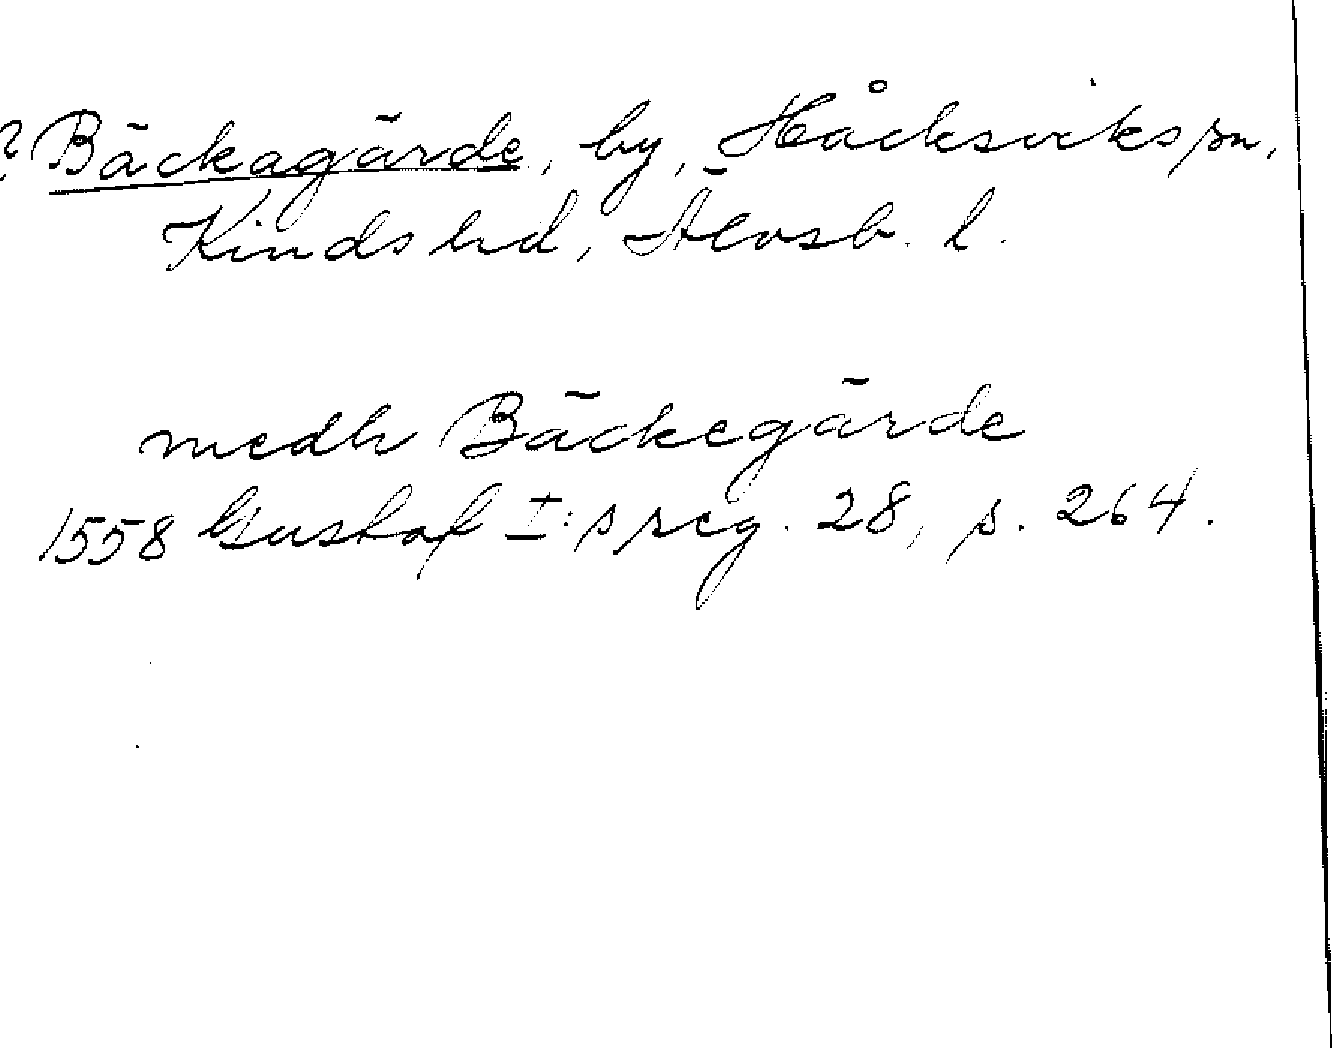 ? Bäckagärde, by, Håcksviks sn,
Kinds hd, Älvsb. l.
medh Bäckegärde
1558 Gustaf I:s reg. 28, s. 264.